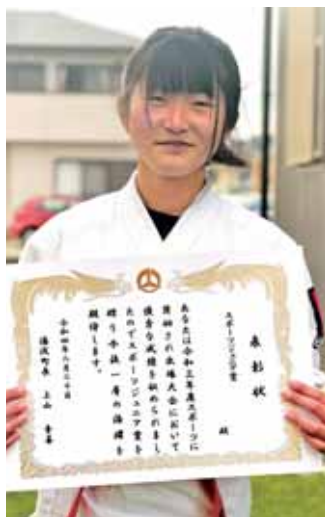 表彰状
スポーツジュニア賞
殿
あなたは令和三年度スポーツに
大会において
優秀な成績を収められまし
たのでスポーツジュニア賞を
贈り今後一層の活躍を
期待します。
令和四年
湯浅町長 上山 章善